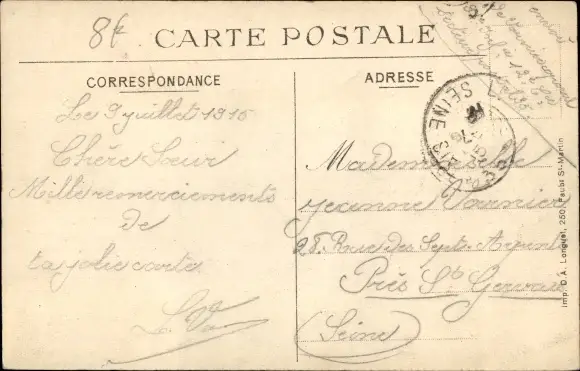 8f
CARTE POSTALE
CORRESPONDANCE
ADRESSE
Le 9 juillet 1915
Chère Sœur
Mille remerciements
de
ta jolie carte
Mademoiselle
Jeanne
28. Rue des Sept Arpents
Près St Gervais
(Seine)
SEINE
Imp. D.A. Longuet, 250, Faubg St-Martin